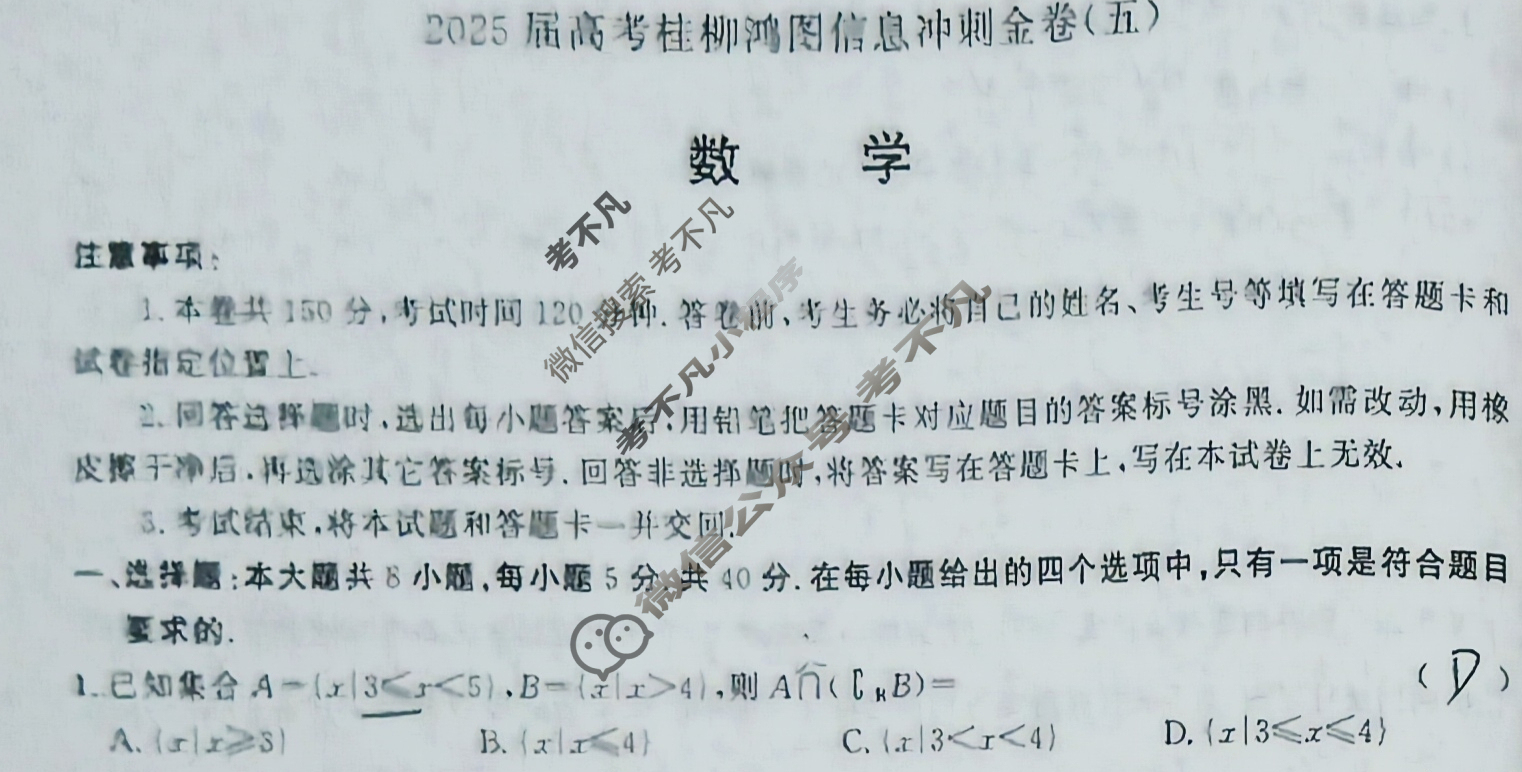 2025届高考桂柳鸿图信息冲刺金卷(五)
数 学
注意事项:
1.本卷共150分,考试时间120分钟.答卷前、考生务必将自己的姓名、考生号等填写在答题卡和
试卷指定位置上.
2.回答选择题时,选出每小题答案后,用铅笔把答题卡对应题目的答案标号涂黑.如需改动,用橡
皮擦干净后,再选涂其它答案标号.回答非选择题时,将答案写在答题卡上,写在本试卷上无效.
3.考试结束,将本试题和答题卡一并交回.
一、选择题:本大题共8小题,每小题5分,共40分.在每小题给出的四个选项中,只有一项是符合题目
要求的.
1.已知集合A={x|3≤x<5},B={x|x>4},则A∩(∁RB)= (D)
A.{x|x≥3} B.{x|x≤4} C.{x|3<x<4} D.{x|3≤x≤4}
考不凡
微信搜索 考不凡
考不凡小程序
微信公众号 考不凡